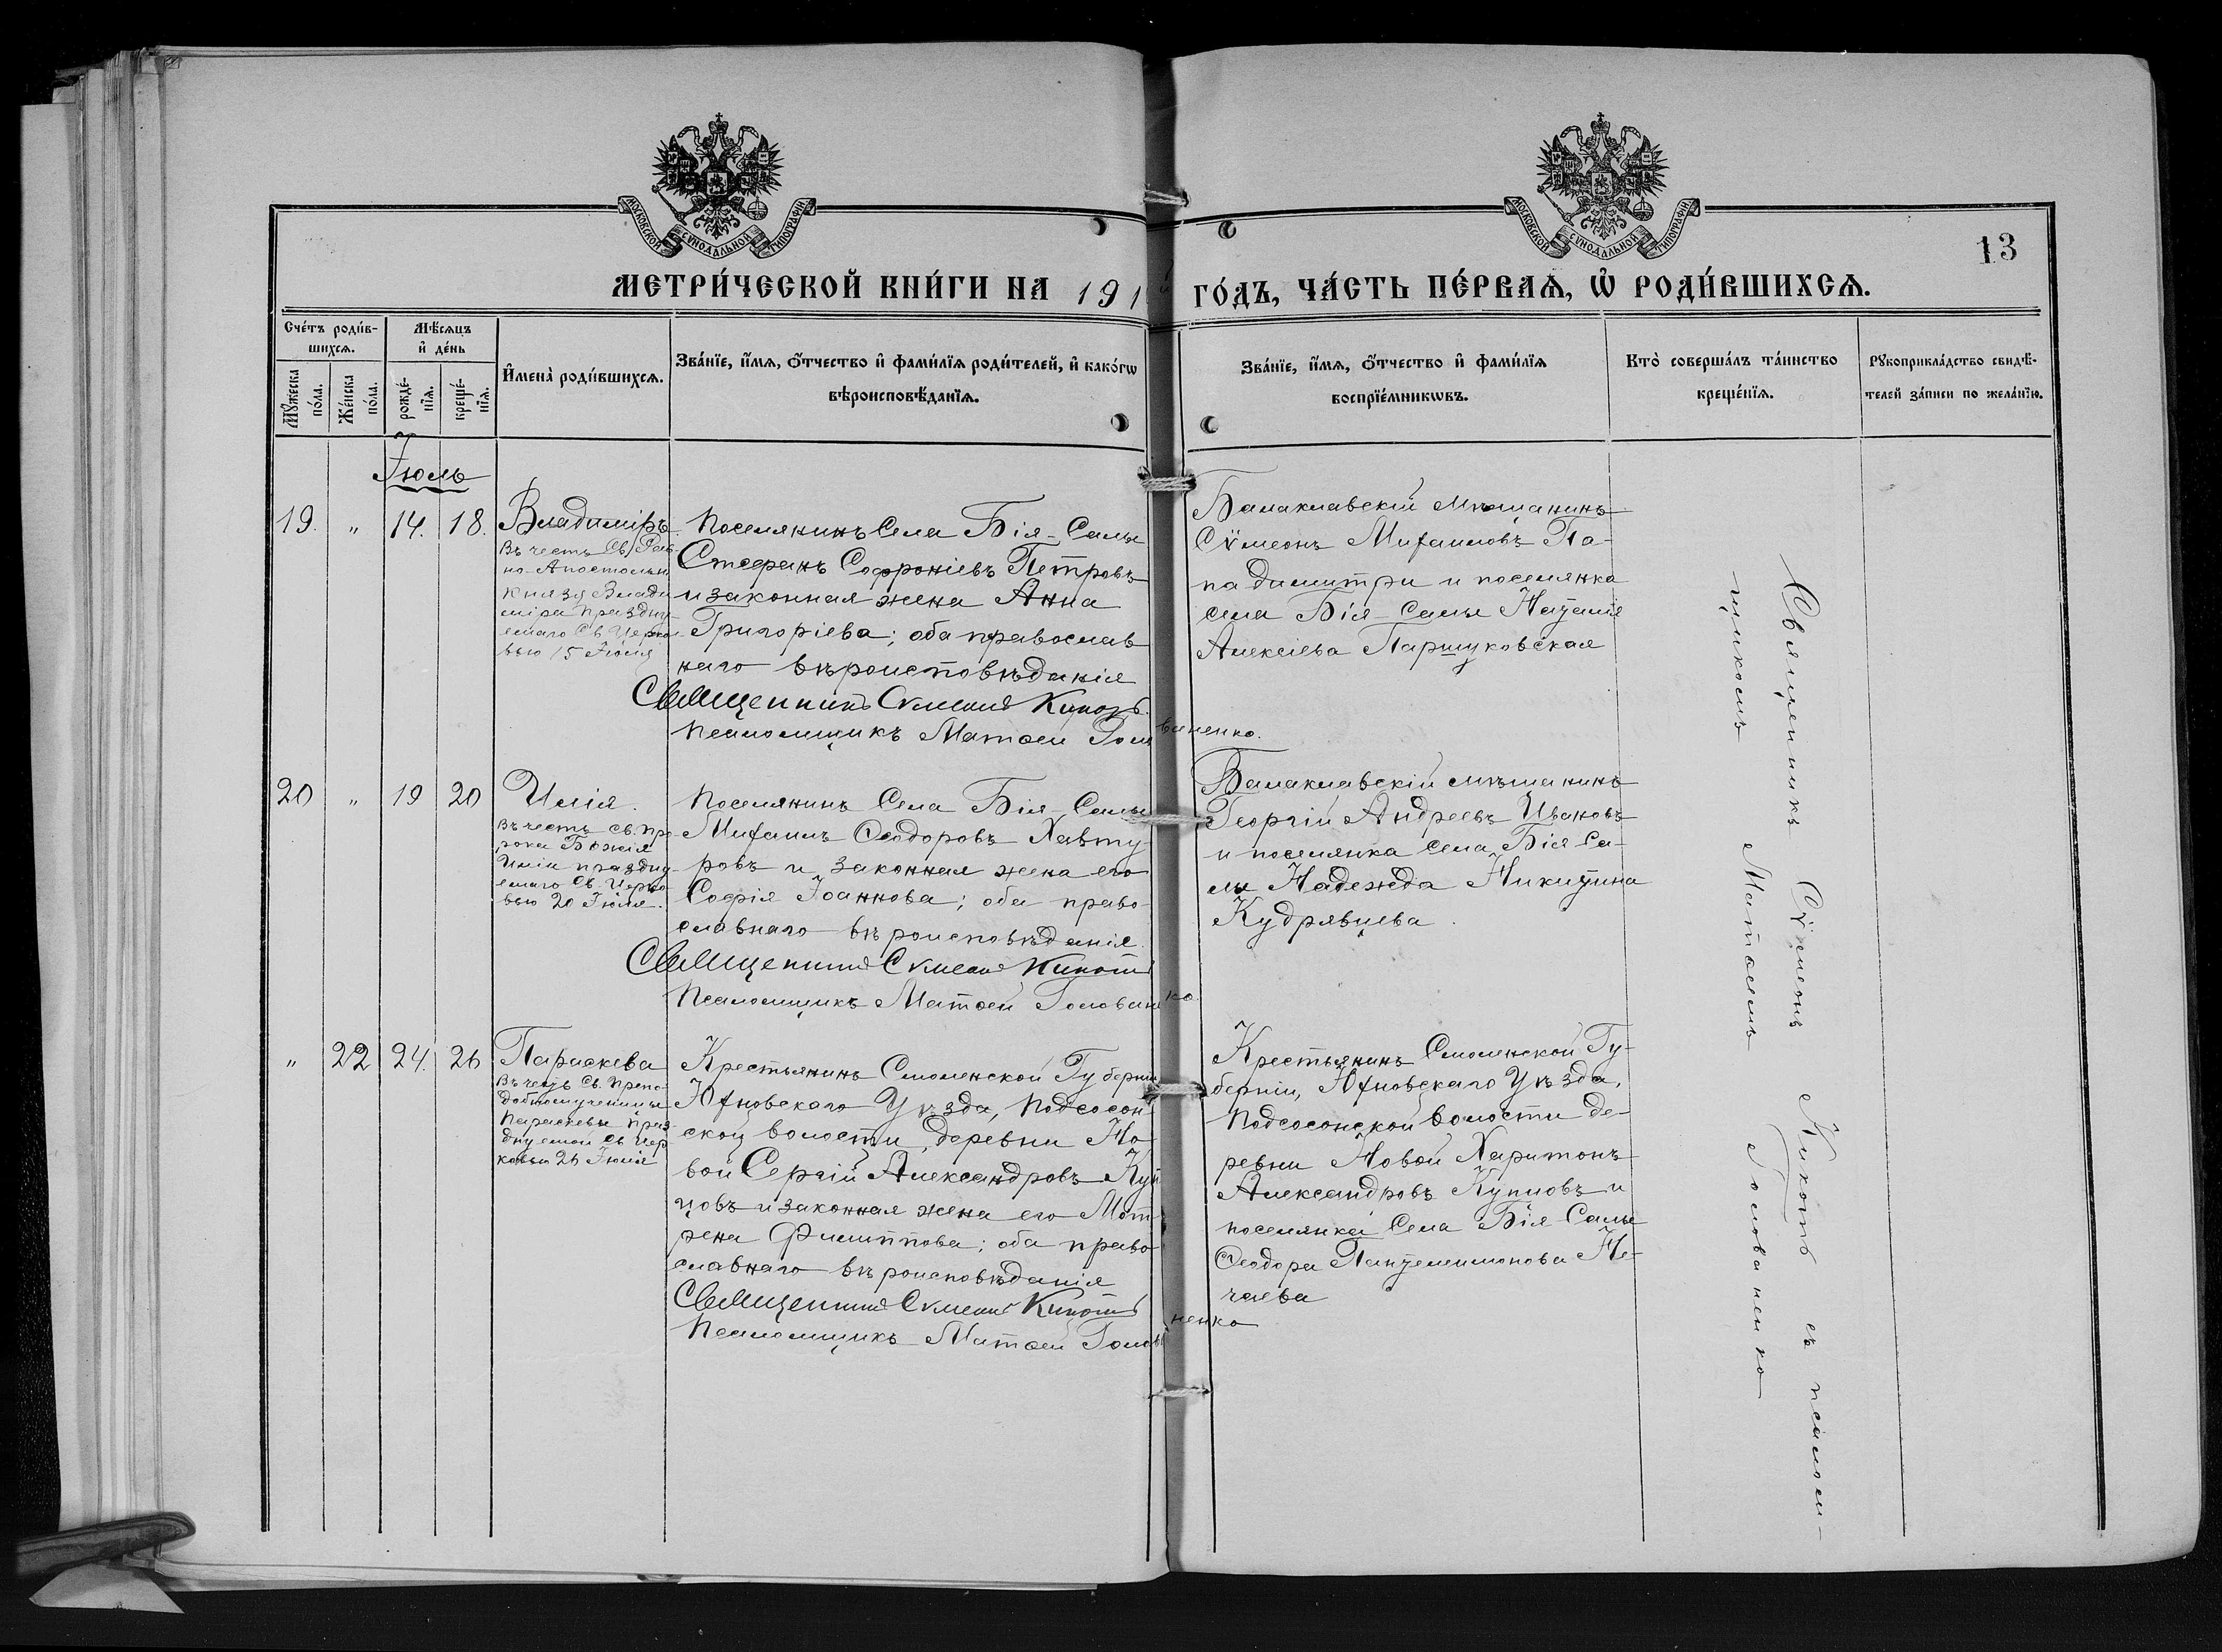 МОСКОВСКОЙ СѴНОДАЛЬНОЙ ТИПОГРАФІИ
МОСКОВСКОЙ СѴНОДАЛЬНОЙ ТИПОГРАФІИ
13
МЕТРИ́ЧЕСКОЙ КНИ́ГИ НА 191
ГО́ДЪ, ЧА́СТЬ ПЕ́РВАѦ, Ѡ҆ РОДИ́ВШИХСѦ.
Сче́тъ роди́в-
шихсѧ.
Мꙋ́жеска по́ла.
Же́нска по́ла.
Мѣ́сѧцъ
и҆ де́нь
рожде́-
нїѧ.
креще́-
нїѧ.
И҆мена̀ роди́вшихсѧ.
Зва́нїе, и҆́мѧ, ѻ҆́тчество и҆ фами́лїѧ роди́телей, и҆ како́гѡ
вѣроисповѣ́данїѧ.
Зва́нїе, и҆́мѧ, ѻ҆́тчество и҆ фами́лїѧ
воспрїе́мникѡвъ.
Кто̀ соверша́лъ та́инство
креще́нїѧ.
Рꙋкоприкла́дство свидѣ́-
телей за́писи по жела́нїю.
Іюль
19. " 14. 18. Владиміръ
Въ честь Св. Рав-
но-Апостольн.
Князя Влади
міра праздну-
емаго Св. Церко-
вью 15 Іюля
Поселянинъ Села Бія-Салы
Стефанъ Софроніевъ Петровъ
и законная жена Анна
Григоріева; оба православ
наго вѣроисповѣданія
Священникъ Сѵмеонъ Кикотъ.
Псаломщикъ Матѳей Голованенко.
Балаклавскій Мѣщанинъ
Сѵмеонъ Михаиловъ Па-
па Димитри и поселянка
села Бія-Салы Наталія
Алексіева Паршуковская
20 " 19 20 Илія.
Въ честь св. про-
рока Божія
Иліи праздну-
емаго Св. Церко-
вью 20 Іюля.
Поселянинъ Села Бія-Салы
Михаилъ Ѳеодоровъ Хавту-
ровъ и законная жена его
Софія Іоаннова; оба право-
славнаго вѣроисповѣданія.
Священникъ Сѵмеонъ Кикотъ
Псаломщикъ Матѳей Голованенко
Балаклавскій мѣщанинъ
Георгій Андреевъ Ивановъ
и поселянка села Бія-Са-
лы Надежда Никитина
Кудрявцева.
" 22 24. 26 Параскева
Въ честь Св. Препо-
добномученицы
Параскевы праз-
днуемой Св. Цер-
ковью 26 Іюля
Крестьянинъ Смоленской Губерніи
Юхновскаго Уѣзда, Подсосон-
ской волости, деревни Но-
вой Сергій Александровъ Куп-
цовъ и законная жена его Мот-
рена Филиппова; оба право-
славнаго вѣроисповѣданія
Священникъ Сѵмеонъ Кикотъ
Псаломщикъ Матѳей Голованенко
Крестьянинъ Смоленской Гу-
берніи, Юхновскаго Уѣзда,
Подсосонской волости де-
ревни Новой Харитонъ
Александровъ Купцовъ и
поселянка Села Бія-Салы
Ѳеодора Пантелеимонова Не-
чаева
Священникъ Сѵмеонъ Кикотъ съ псалом-
щикомъ Матѳеемъ Голованенко